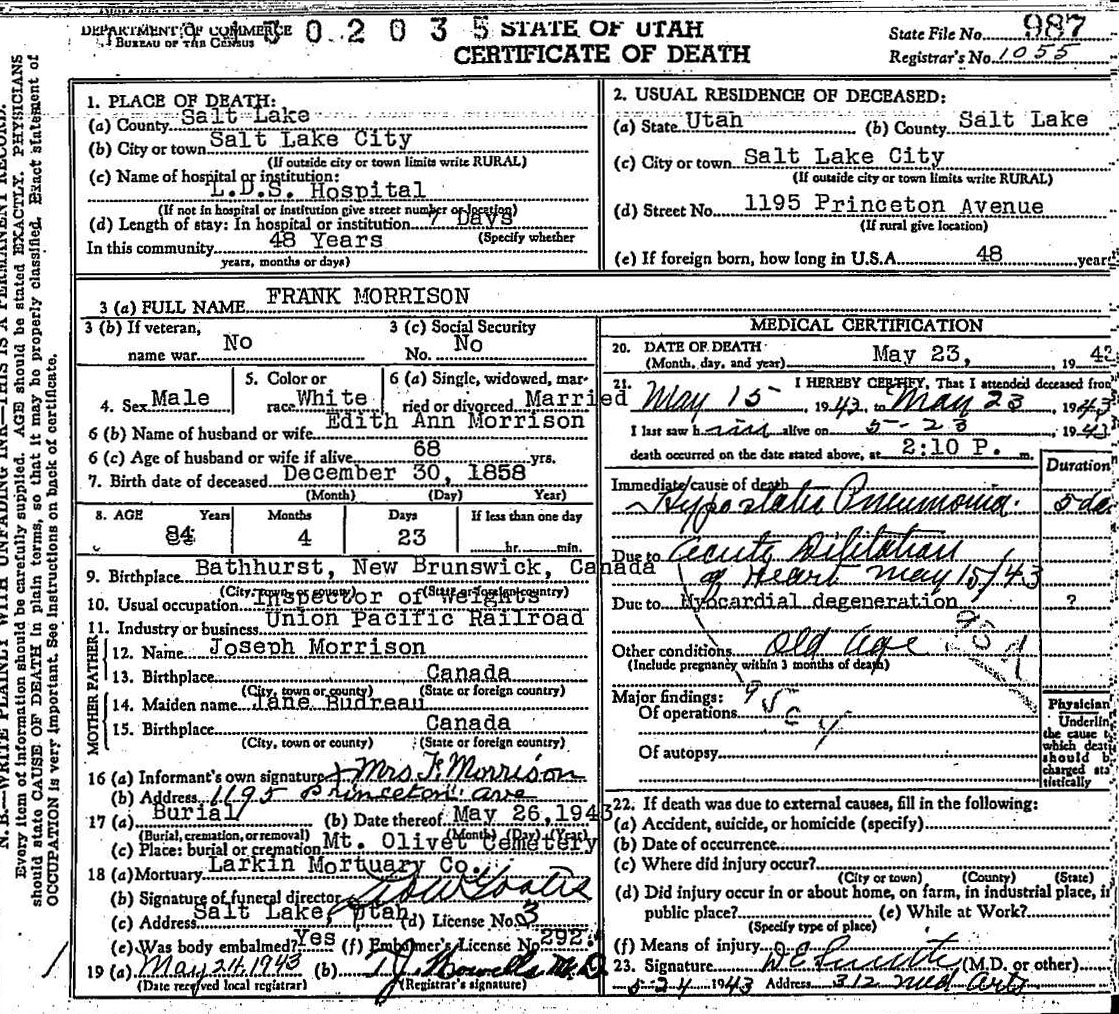 DEPARTMENT OF COMMERCE
BUREAU OF THE CENSUS
5 0 2 0 3 5
STATE OF UTAH
CERTIFICATE OF DEATH
State File No. 987
Registrar's No. 1055
N. B.—WRITE PLAINLY WITH UNFADING INK—THIS IS A PERMANENT RECORD.
Every item of information should be carefully supplied. AGE should be stated EXACTLY. PHYSICIANS
should state CAUSE OF DEATH in plain terms, so that it may be properly classified. Exact statement of
OCCUPATION is very important. See instructions on back of certificate.
1. PLACE OF DEATH:
(a) County Salt Lake
(b) City or town Salt Lake City
(If outside city or town limits write RURAL)
(c) Name of hospital or institution:
L.D.S. Hospital
(If not in hospital or institution give street number or location)
(d) Length of stay: In hospital or institution 7 Days
(Specify whether
In this community 48 Years
years, months or days)
2. USUAL RESIDENCE OF DECEASED:
(a) State Utah (b) County Salt Lake
(c) City or town Salt Lake City
(If outside city or town limits write RURAL)
(d) Street No. 1195 Princeton Avenue
(If rural give location)
(e) If foreign born, how long in U.S.A. 48 years
3 (a) FULL NAME FRANK MORRISON
3 (b) If veteran,
name war No
3 (c) Social Security
No. No
4. Sex Male
5. Color or
race White
6 (a) Single, widowed, mar-
ried or divorced Married
6 (b) Name of husband or wife Edith Ann Morrison
6 (c) Age of husband or wife if alive 68 yrs.
7. Birth date of deceased December 30, 1858
(Month) (Day) Year)
8. AGE Years Months Days If less than one day
84 4 23 hr. min.
9. Birthplace Bathhurst, New Brunswick, Canada
(City, town or county) (State or foreign country)
10. Usual occupation Inspector of Weights
11. Industry or business Union Pacific Railroad
FATHER
12. Name Joseph Morrison
13. Birthplace Canada
(City, town or county) (State or foreign country)
MOTHER
14. Maiden name Jane Budreau
15. Birthplace Canada
(City, town or county) (State or foreign country)
16 (a) Informant's own signature Mrs F. Morrison
(b) Address 1195 Princeton ave
17 (a) Burial (b) Date thereof May 26, 1943
(Burial, cremation, or removal) (Month) (Day) (Year)
(c) Place: burial or cremation Mt. Olivet Cemetery
18 (a) Mortuary Larkin Mortuary Co.
(b) Signature of funeral director
(c) Address Salt Lake, Utah (d) License No. 3
(e) Was body embalmed? Yes (f) Embalmer's License No. 292
19 (a) May 24, 1943 (b) M.D.
(Date received local registrar) (Registrar's signature)
MEDICAL CERTIFICATION
20. DATE OF DEATH
(Month, day, and year) May 23, 19 43
21. I HEREBY CERTIFY, That I attended deceased from
May 15, 1943, to May 23, 1943
I last saw him alive on 5-23, 1943
death occurred on the date stated above, at 2:10 P. m.
Duration
Immediate cause of death
Hypostatic Pneumonia. 5 da
Due to Acute Dilitation
of Heart May 15/43
Due to Myocardial degeneration ?
Other conditions Old Age
(Include pregnancy within 3 months of death)
Major findings:
Of operations
Of autopsy
Physician
Underline
the cause to
which death
should be
charged sta-
tistically
22. If death was due to external causes, fill in the following:
(a) Accident, suicide, or homicide (specify)
(b) Date of occurrence
(c) Where did injury occur?
(City or town) (County) (State)
(d) Did injury occur in or about home, on farm, in industrial place, in
public place? (e) While at Work?
(Specify type of place)
(f) Means of injury
23. Signature (M.D. or other)
5-24 1943 Address 312 Med Arts